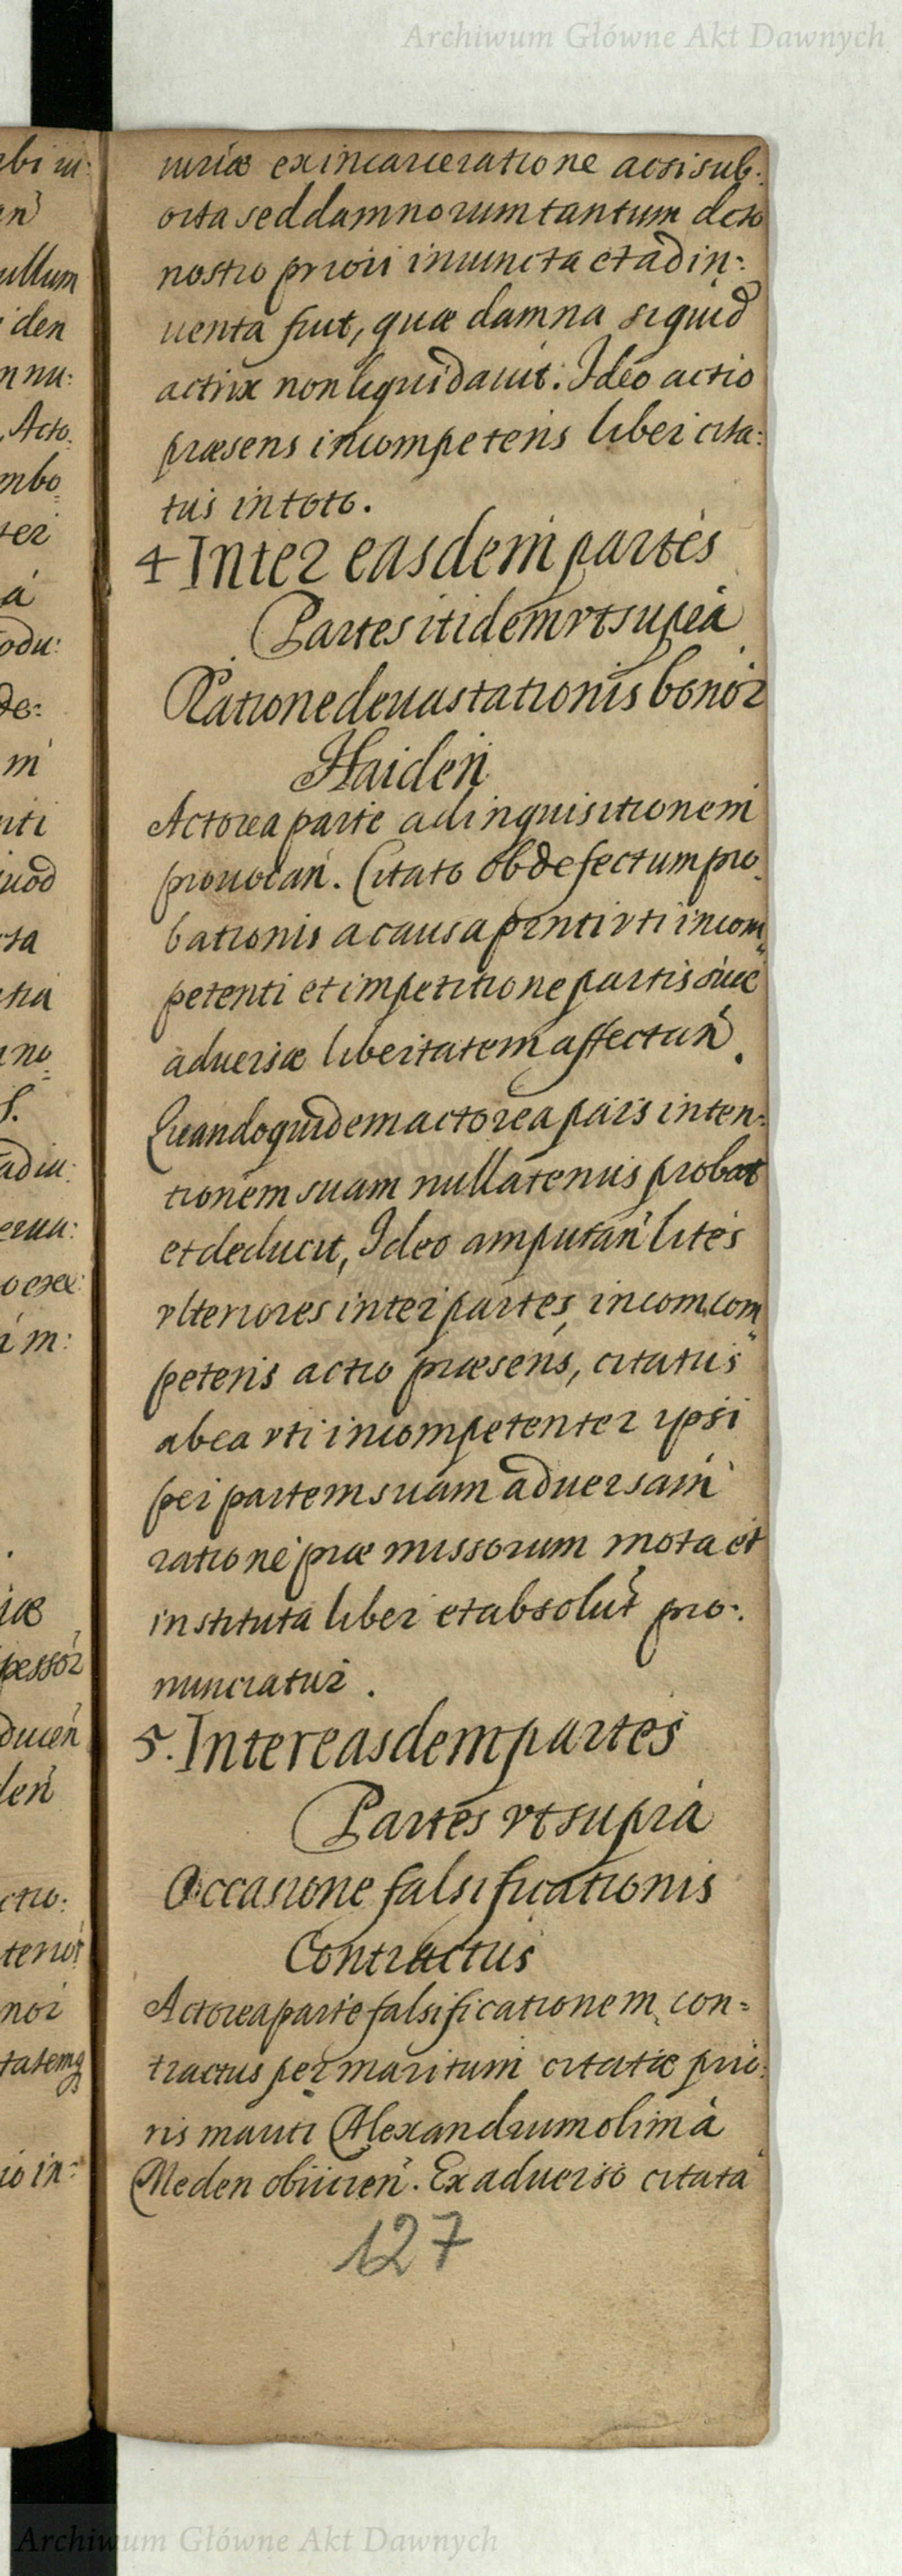 Archiwum Główne Akt Dawnych
iuriæ ex incarceratione acsi sub:
orta sed damnorum tantum dcto
nostro priori iniuncta et adin:
uenta fuit, quæ damna siquid
actrix non liquidauit. Ideo actio
præsens incompetens liber cita:
tus in toto.
4 Inter easdem partes
Partes itidem vt supra
Ratione deuastationis bonor
Haiden
Actorea parte ad inquisitionem
prouocan. Citato ob defectum pro:
bationis a causa pnti vti incom
petenti et impetitione partis suæ
aduersæ libertatem affectan.
Quandoquidem actorea pars inten:
tionem suam nullatenus probat
et deducit, Ideo amputan lites
vlteriores inter partes, incom com
petens actio præsens, citatus
ab ea vti incompetenter ipsi
per partem suam aduersam
ratione præmissorum mota et
instituta liber et absolut pro:
nunciatur.
5. Inter easdem partes
Partes vt supra
Occasione falsificationis
Contractus
Actorea parte falsificationem con=
tractus per maritum citatæ prio:
ris mariti Alexandrum olim à
Meden obiicien. Ex aduerso citata
127
Archiwum Główne Akt Dawnych